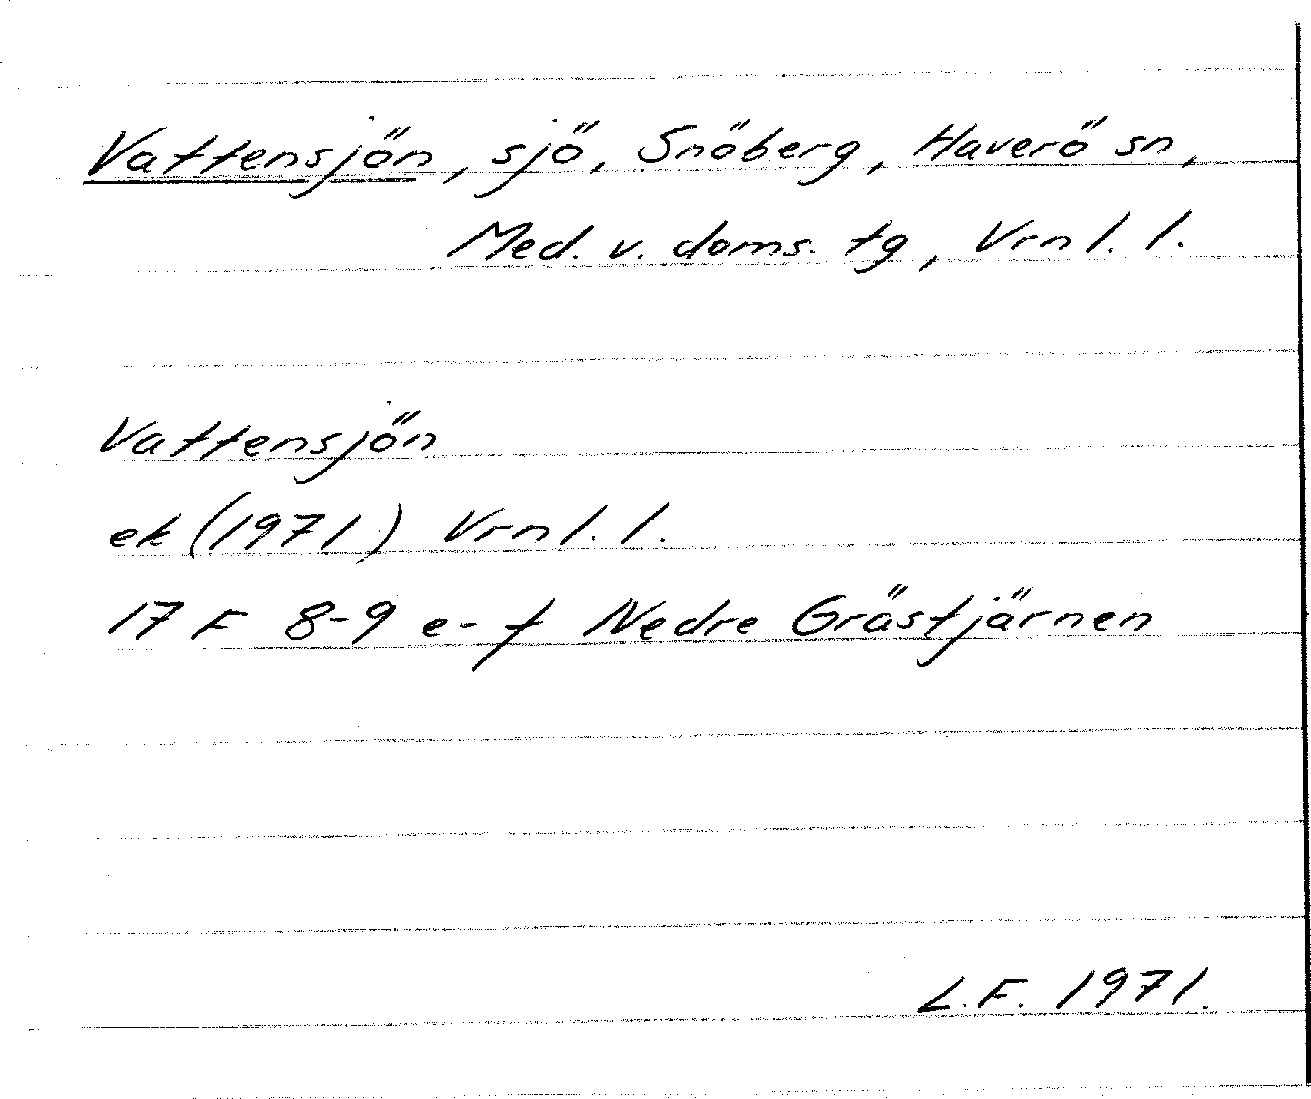 Vattensjön, sjö, Snöberg, Haverö sn,
Med. v. doms. tg, Vrnl. l.
Vattensjön
ek (1971) Vrnl. l.
17 F 8-9 e-f Nedre Grästjärnen
L.F. 1971.